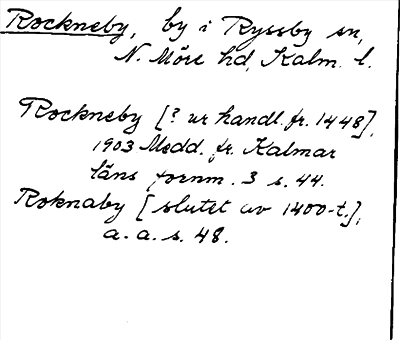 Rockneby, by i Ryssby sn,
N. Möre hd, Kalm. l.
Rockneby [? ur handl. fr. 1448],
1903 Medd. fr. Kalmar
läns fornm. 3 s. 44.
Roknaby [slutet av 1400-t.],
a. a. s. 48.